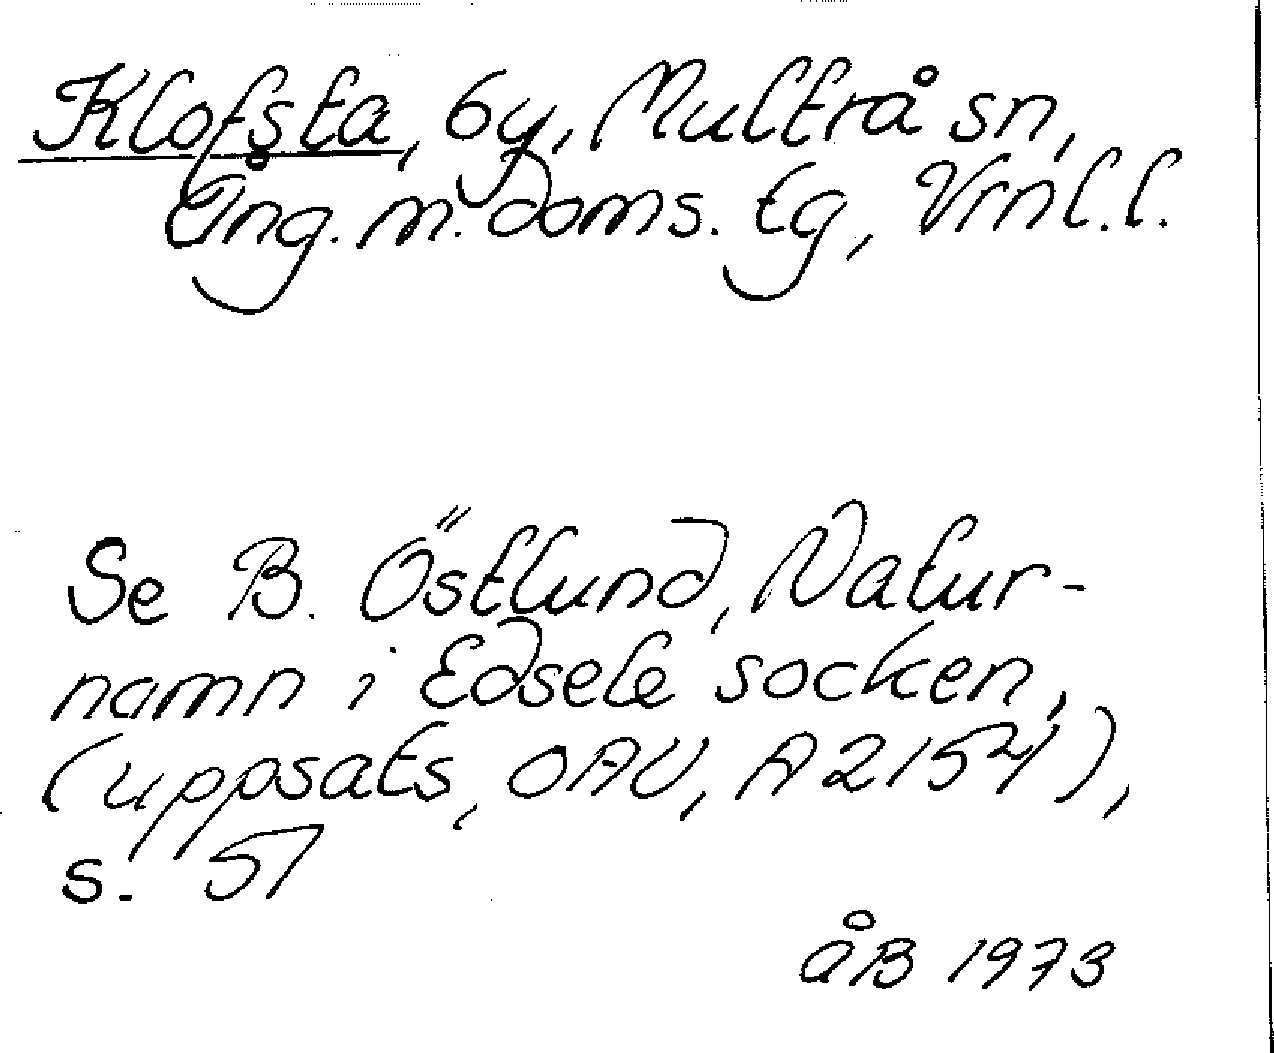 Klofsta, by, Multrå sn,
Ång. m. doms. tg, Vrnl.l.
Se B. Östlund, Natur-
namn i Edsele socken,
(uppsats, OAU, A 2154),
s. 51
åB 1973